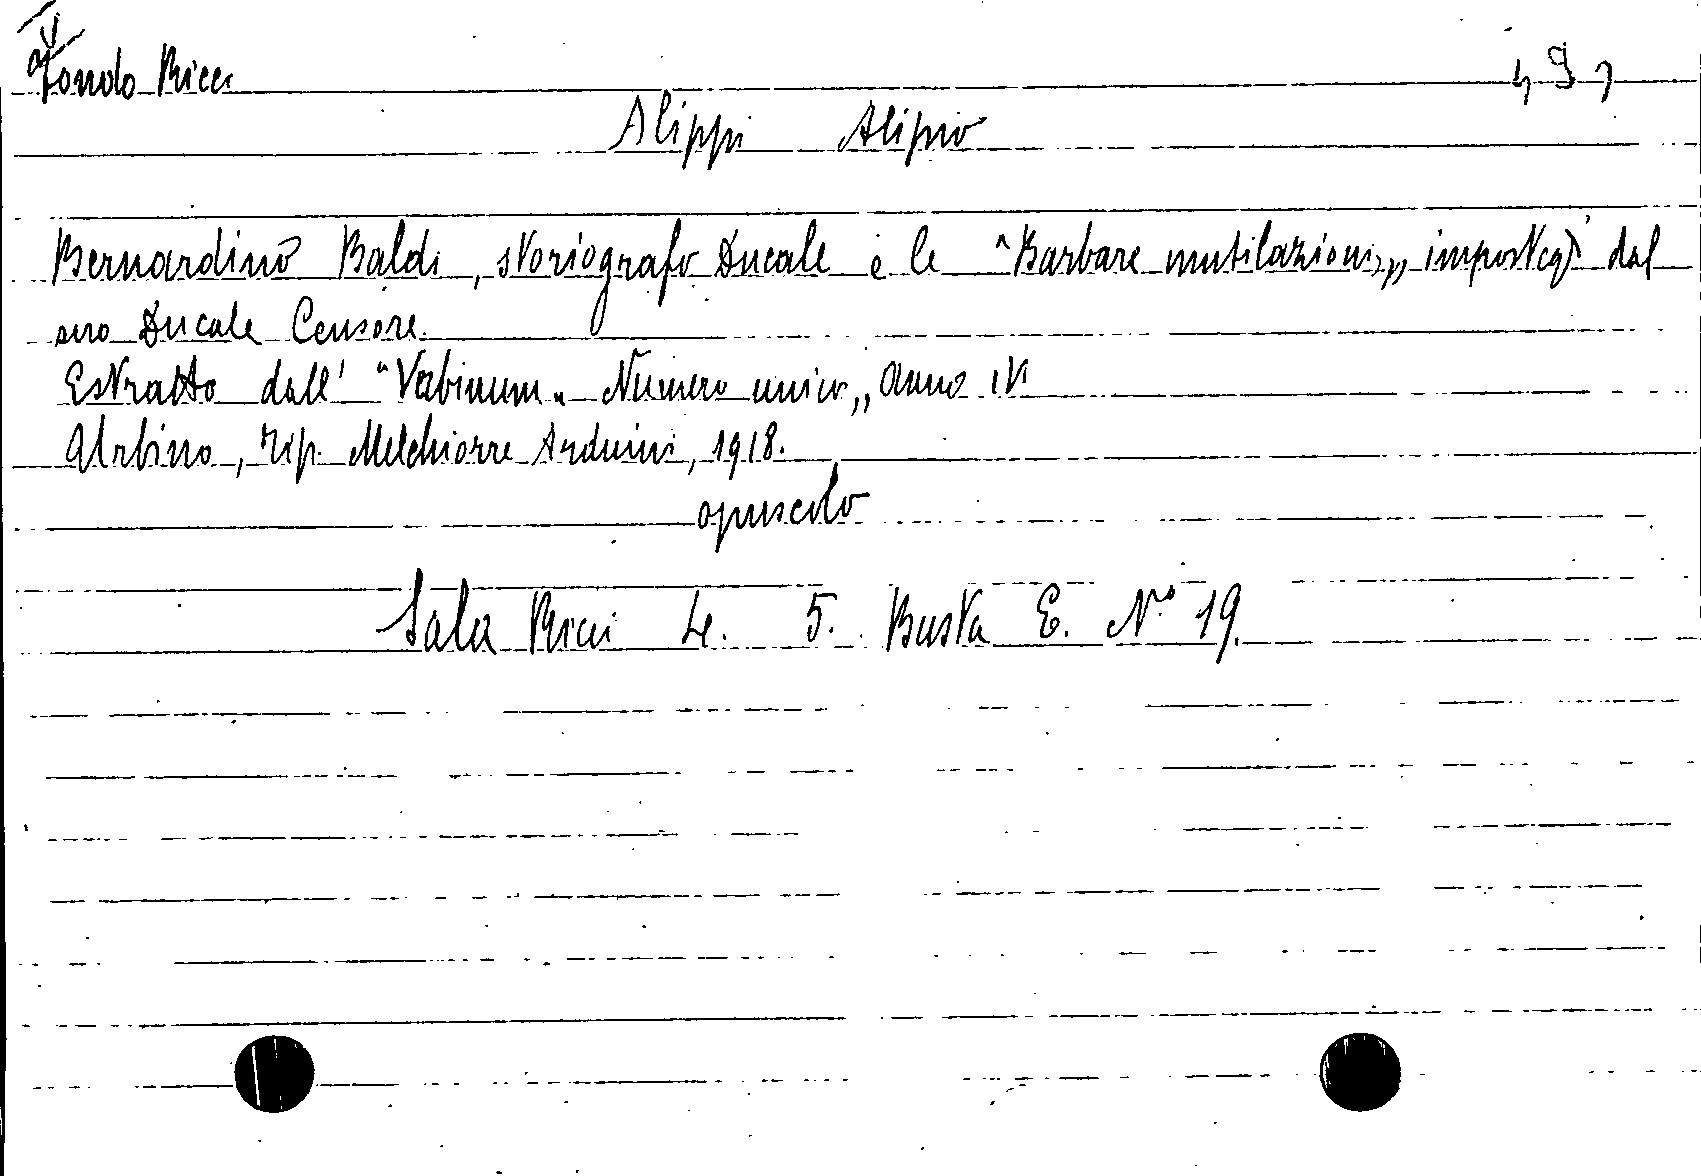 Fondo Ricci
Alippi Alipio
Bernardino Baldi, storiografo Ducale e le "Barbare mutilazioni„ impostegli dal
suo Ducale Censore.
Estratto dall' "Vrbinum„ Numero unico„ Anno IV
Urbino, Tip. Melchiorre Arduini, 1918.
opuscolo
Sala Ricci Le. 5. Busta E. N° 19.